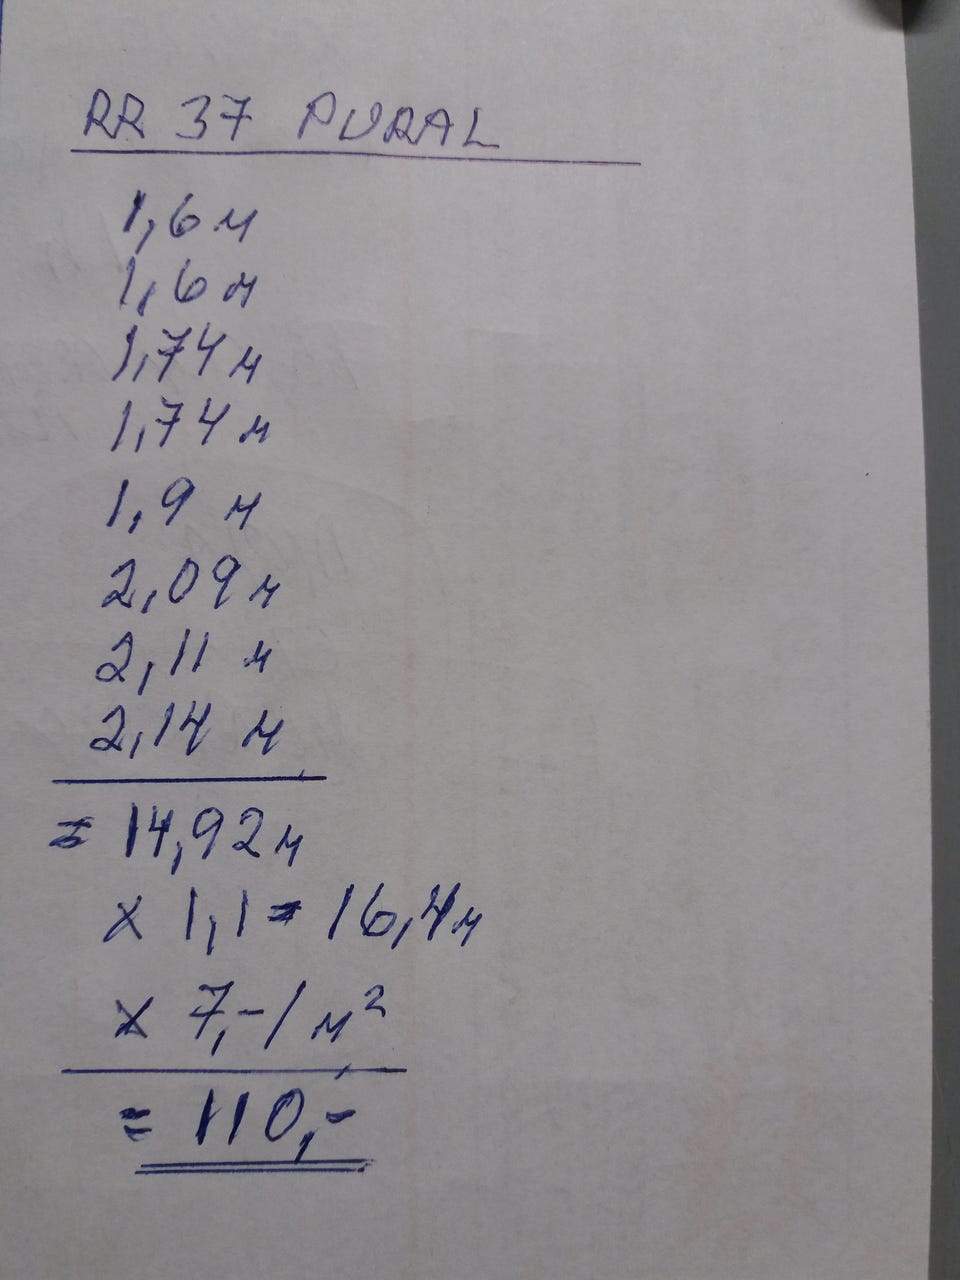 RR 37 PURAL
1,6 м
1,6 м
1,74 м
1,74 м
1,9 м
2,09 м
2,11 м
2,14 м
= 14,92 м
x 1,1 = 16,4 м
x 7,-/м²
= 110,-